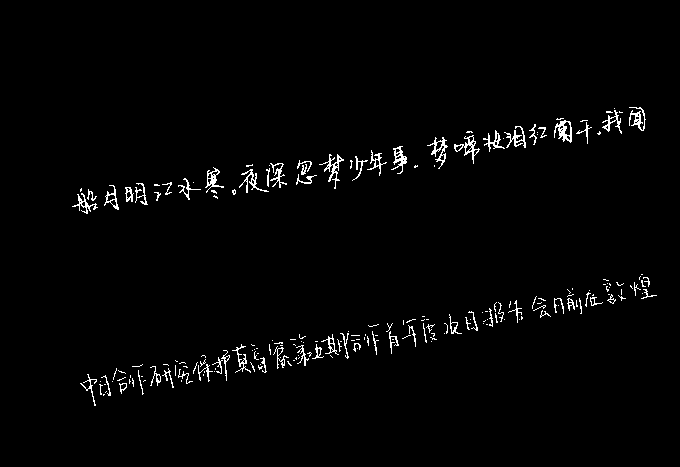 船月明江水寒。夜深忽梦少年事.梦啼妆泪红阑干.我闻
中日合作研究保护莫高窟第五期合作首年度次目报告会日前在敦煌